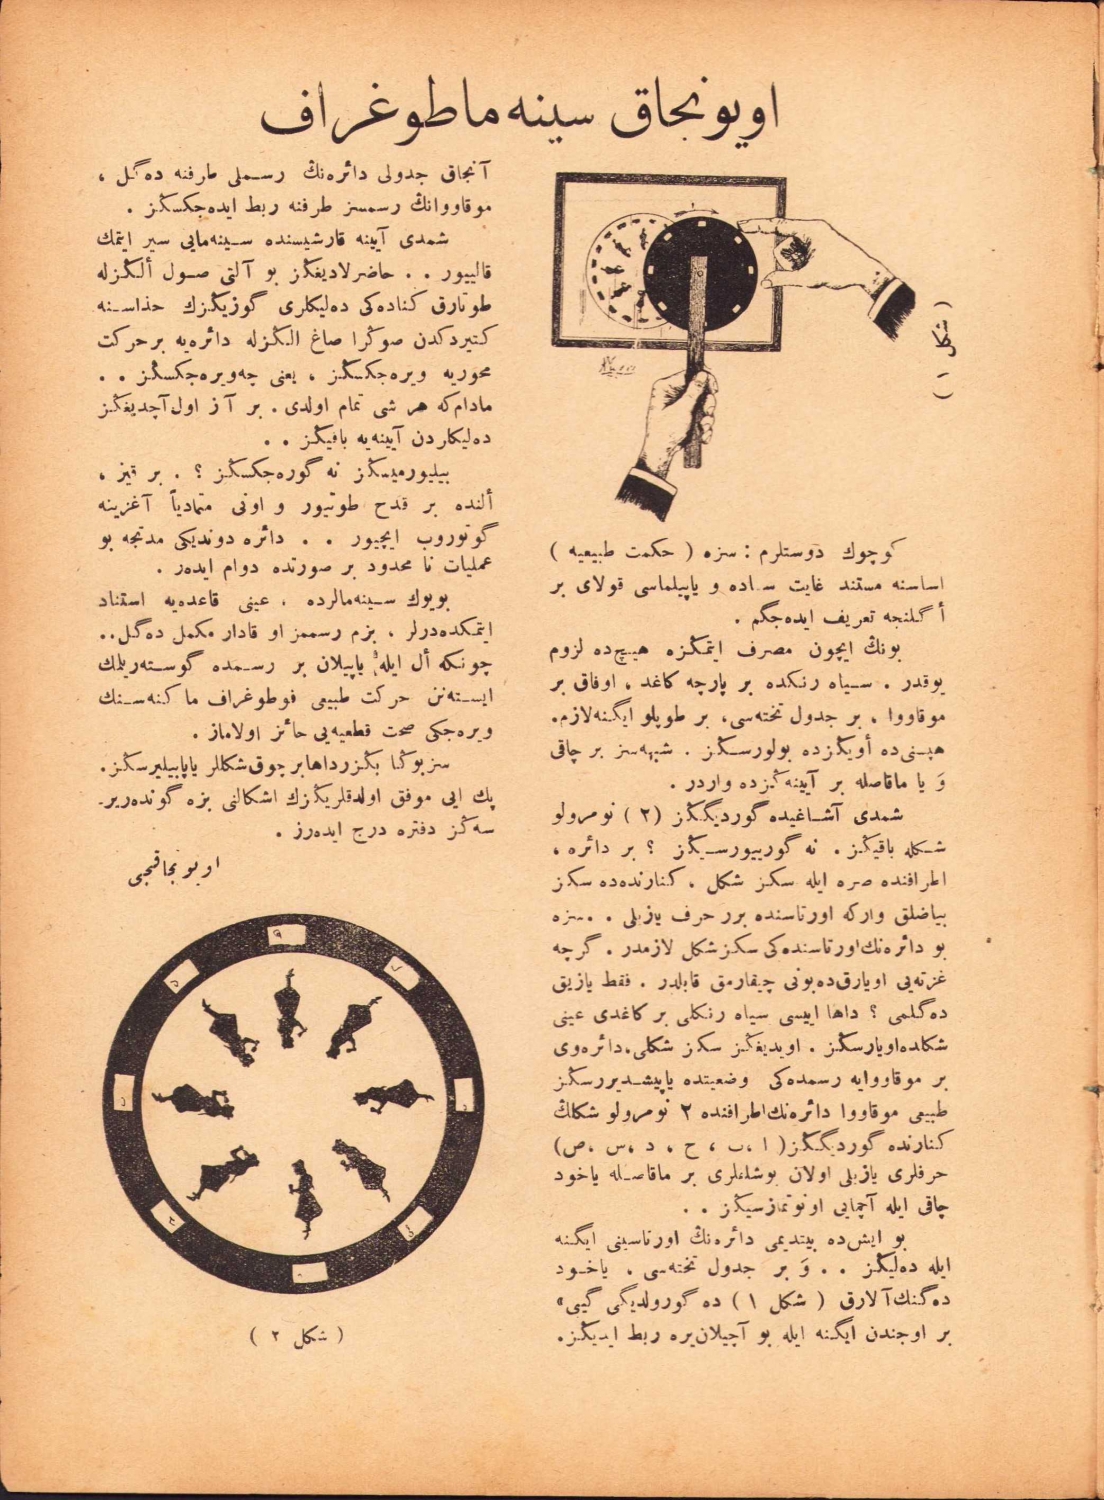 اويونجاق سينه‌ماطوغراف
( شكل ١ )
كوچوك دوستلرم : سزه ( حكمت طبيعيه )
اساسنه مستند غايت ساده و ياپيلماسى قولاى بر
أگلنجه تعريف ايده‌جگم .
بونك ايچون مصرف ايتمكزه هيچ‌ده لزوم
يوقدر . سياه رنكده بر پارچه كاغد ، اوفاق بر
موقاووا ، بر جدول تخته‌سى، بر طوپلو ايگنه لازم.
هپسنى‌ده أويڭزده بولورسڭز . شبهه‌سز بر چاقى
وَ يا ماقاصله بر آيينه‌ڭزده واردر .
شمدى آشاغيده گورديگڭز (٢) نومرولو
شكله باقيڭز . نه گورييورسڭز ؟ بر دائره ،
اطرافنده صره ايله سكز شكل . كنارنده‌ده سكز
بياضلق واركه اورتاسنده برر حرف يازيلى . . سزه
بو دائره‌نك اورتاسنده‌كى سكز شكل لازمدر . گرچه
غزته‌يى اويارق‌ده بونى چيقارمق قابلدر . فقط يازيق
ده‌گلمى ؟ داها اييسى سياه رنكلى بر كاغدى عينى
شكلده اويارسڭز . اويديغڭز سكز شكلى، دائره‌وى
بر موقاوايه رسمده‌كى وضعيتده ياپيشديررسڭز
طبيعى موقاووا دائره‌نك اطرافنده ٢ نومرولو شكلڭ
كنارنده گورديگڭز( ا ،ب ، ح ، د ،س ،ص)
حرفلرى يازيلى اولان بوشلقلرى بر ماقاصله ياخود
چاقى ايله آچمايى اونوتمازسيڭز . .
بو ايش‌ده بيتديمى دائره‌نڭ اورتاسينى ايگنه
ايله ده‌ليڭز . . وَ بر جدول تخته‌سى ، ياخود
ده‌گنك آلارق ( شكل ١ ) ده گورولديگى گيى
بر اوجندن ايگنه ايله بو آچيلان يره ربط ايديڭز.
آنجاق جدولى دائره‌نڭ رسملى طرفنه ده‌گل ،
موقاووانڭ رسمسز طرفنه ربط ايده‌جكسڭز .
شمدى آيينه قارشيسنده سينه‌مايى سير ايتمك
قالييور . . حاضرلاديغڭز بو آلتى صول ألڭزله
طوتارق كناده‌كى ده‌ليكلرى گوزيڭزك حذاسنه
كتيردكدن صوڭرا صاغ الڭزله دائره‌يه بر حركت
محوريه ويره‌جكسڭز ، يعنى چه‌ويره‌جكسڭز . .
مادام‌كه هر شى تمام اولدى . بر آز اول آچديغڭز
ده‌ليكلردن آيينه‌يه باقيڭز . .
بيليورميسڭز نه گوره‌جكسڭز ؟ . بر قيز ،
ألنده بر قدح طوتيور و اونى متمادياً آغزينه
گوتوروب ايچيور . . دائره دونديكى مدتجه بو
عمليات نا محدود بر صورتده دوام ايده‌ر .
بويوك سينه‌مالرده ، عينى قاعده‌يه استناد
ايتمكده‌درلر . بزم رسممز او قادار مكمل ده‌گل..
چونكه أل ايله ياپيلان بر رسمده گوسته‌ريلمك
ايسته‌نن حركت طبيعى فوطوغراف ماكنه‌سنك
ويره‌جكى صحت قطعيه‌يى حائز اولاماز .
سز بوڭا بڭزر داها بر چوق شكللر ياپابيليرسڭز.
پك ايى موفق اولدقلريڭزك اشكالنى بزه گونده‌رير-
سه‌ڭز دفتره درج ايده‌رز .
اويونجاقجى
( شكل ٢ )